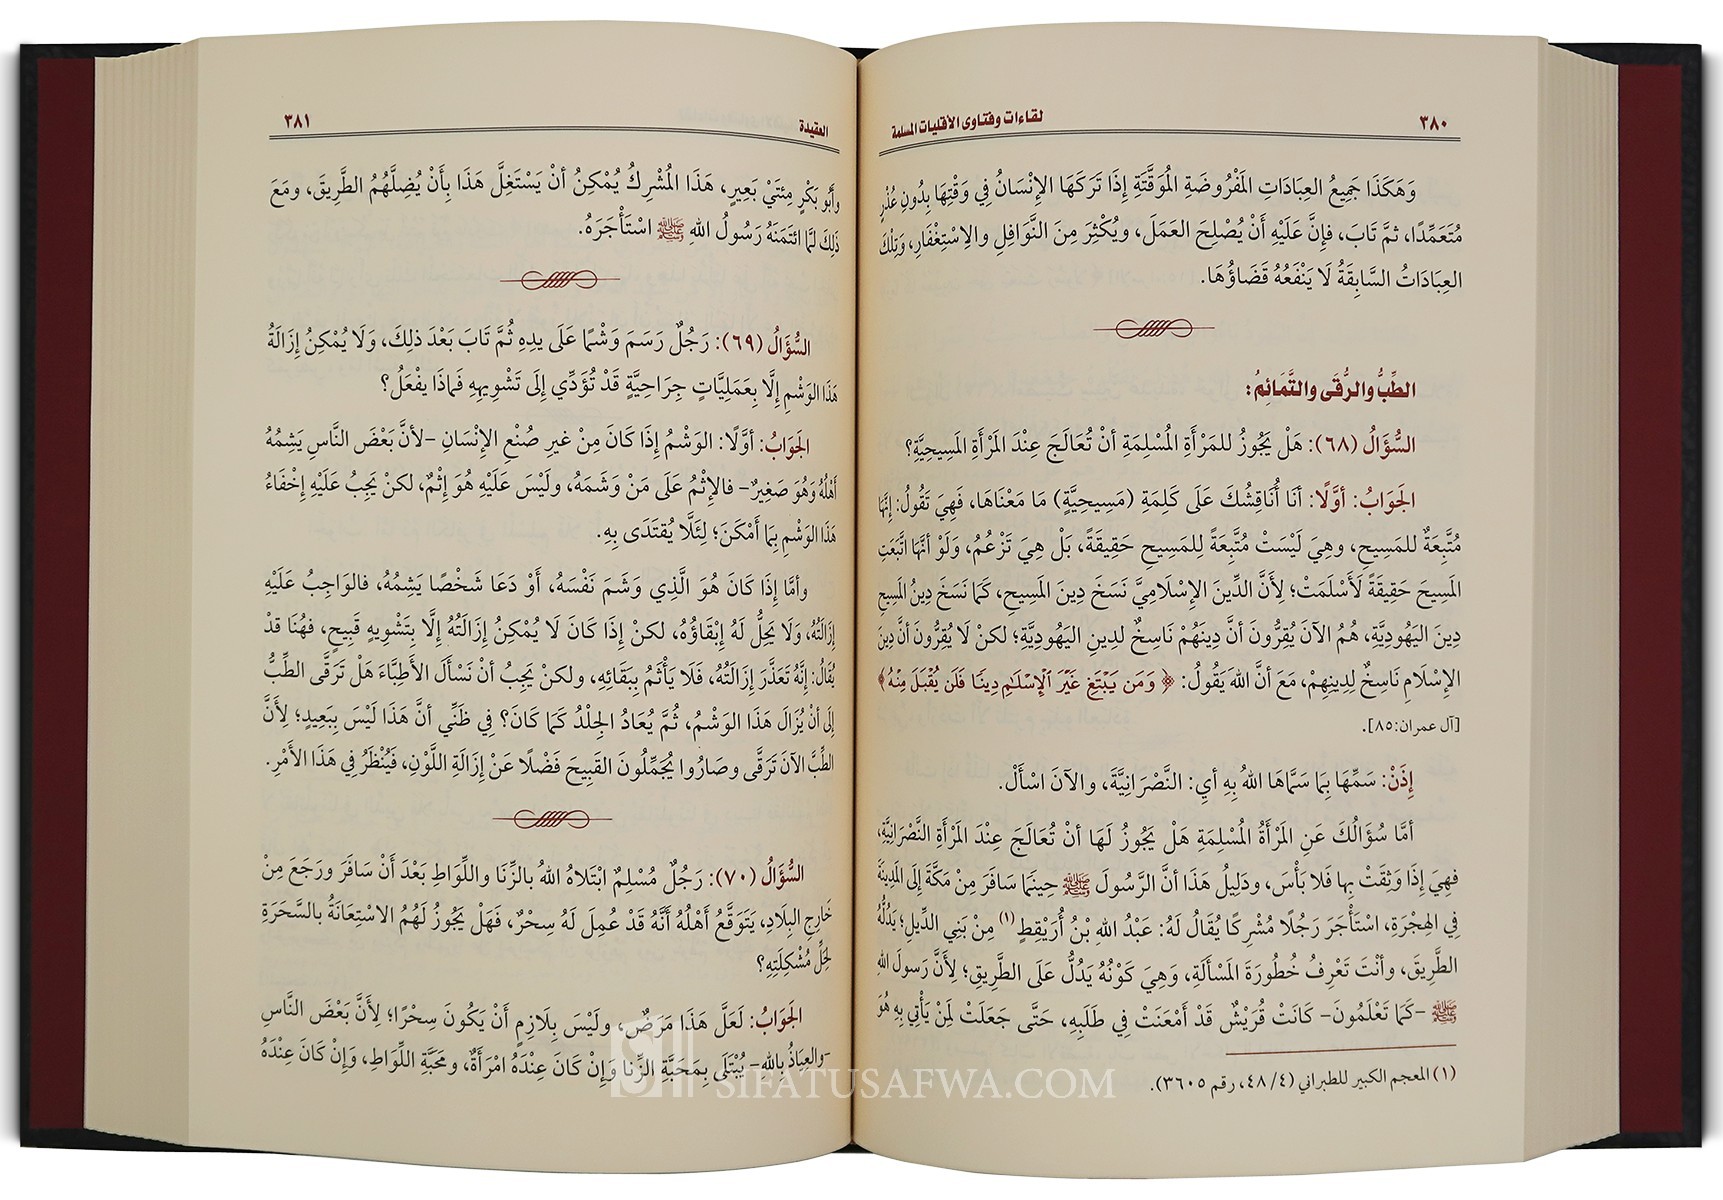 ٣٨٠
لقاءات وفتاوى الأقليات المسلمة
وَهَكَذَا جَمِيعُ العِبَادَاتِ المَفْرُوضَةِ المُوَقَّتَةِ إِذَا تَرَكَهَا الإِنْسَانُ فِي وَقْتِهَا بِدُونِ عُذْرٍ
مُتَعَمِّدًا، ثمَّ تَابَ، فَإِنَّ عَلَيْهِ أَنْ يُصْلِحَ العَمَلَ، ويُكْثِرَ مِنَ النَّوَافِلِ والِاسْتِغْفَارِ، وَتِلْكَ
العِبَادَاتُ السَّابِقَةُ لَا يَنْفَعُهُ قَضَاؤُهَا.
الطِّبُّ والرُّقَى والتَّمَائِمُ:
السُّؤَالُ (٦٨): هَلْ يَجُوزُ للمَرْأَةِ المُسْلِمَةِ أنْ تُعَالَجَ عِنْدَ المَرْأَةِ المَسِيحِيَّةِ؟
الجَوَابُ: أوَّلًا: أنَا أُنَاقِشُكَ عَلَى كَلِمَةِ (مَسِيحِيَّةٍ) مَا مَعْنَاهَا، فَهِيَ تَقُولُ: إِنَّهَا
مُتَّبِعَةٌ للمَسِيحِ، وهِيَ لَيْسَتْ مُتَّبِعَةً لِلمَسِيحِ حَقِيقَةً، بَلْ هِيَ تَزْعُمُ، وَلَوْ أنَّهَا اتَّبَعَتِ
المَسِيحَ حَقِيقَةً لَأَسْلَمَتْ؛ لِأَنَّ الدِّينَ الإِسْلَامِيَّ نَسَخَ دِينَ المَسِيحِ، كَمَا نَسَخَ دِينُ المَسِيحِ
دِينَ اليَهُودِيَّةِ، هُمُ الآنَ يُقِرُّونَ أنَّ دِينَهُمْ نَاسِخٌ لِدِينِ اليَهُودِيَّةِ؛ لكنْ لَا يُقِرُّونَ أنَّ دِينَ
الإِسْلَامِ نَاسِخٌ لِدِينِهِمْ، مَعَ أنَّ اللهَ يَقُولُ: ﴿ وَمَن يَبْتَغِ غَيْرَ ٱلْإِسْلَٰمِ دِينًا فَلَن يُقْبَلَ مِنْهُ ﴾
[آل عمران:٨٥].
إِذَنْ: سَمِّهَا بِمَا سَمَّاهَا اللهُ بِهِ أيِ: النَّصْرَانِيَّةَ، والآنَ اسْأَلْ.
أمَّا سُؤَالُكَ عَنِ المَرْأَةِ المُسْلِمَةِ هَلْ يَجُوزُ لَهَا أنْ تُعَالَجَ عِنْدَ المَرْأَةِ النَّصْرَانِيَّةِ،
فَهِيَ إِذَا وَثِقَتْ بِها فَلا بَأْسَ، ودَلِيلُ هَذَا أنَّ الرَّسُولَ ﷺ حِينَمَا سَافَرَ مِنْ مَكَّةَ إِلَى المَدِينَةِ
فِي الهِجْرَةِ، اسْتَأْجَرَ رَجُلًا مُشْرِكًا يُقَالُ لَهُ: عَبْدُ اللهِ بْنُ أُرَيْقِطٍ(١) مِنْ بَنِي الدِّيلِ؛ يَدُلُّهُ
الطَّرِيقَ، وأنْتَ تَعْرِفُ خُطُورَةَ المَسْأَلَةِ، وَهِيَ كَوْنُهُ يَدُلُّ عَلَى الطَّرِيقِ؛ لِأَنَّ رَسولَ اللهِ
ﷺ -كَمَا تَعْلَمُونَ- كَانَتْ قُرَيْشٌ قَدْ أَمْعَنَتْ فِي طَلَبِهِ، حَتَّى جَعَلَتْ لِمَنْ يَأْتِي بِهِ هُوَ
(١) المعجم الكبير للطبراني (٤/ ٤٨، رقم ٣٦٠٥).
العقيدة
٣٨١
وأَبُو بَكْرٍ مِئتَيْ بَعِيرٍ، هَذَا المُشْرِكُ يُمْكِنُ أنْ يَسْتَغِلَّ هَذَا بِأَنْ يُضِلَّهُمُ الطَّرِيقَ، ومَعَ
ذَلِكَ لَمَّا ائتَمَنَهُ رَسُولُ اللهِ ﷺ اسْتَأْجَرَهُ.
السُّؤَالُ (٦٩): رَجُلٌ رَسَمَ وَشْمًا عَلَى يدِهِ ثُمَّ تَابَ بَعْدَ ذلِكَ، وَلَا يُمْكِنُ إِزَالَةُ
هَذَا الوَشْمِ إِلَّا بِعَمَلِيَّاتٍ جِرَاحِيَّةٍ قَدْ تُؤَدِّي إِلَى تَشْوِيهِهِ فَماذَا يفْعَلُ؟
الجَوَابُ: أوَّلًا: الوَشْمُ إِذَا كَانَ مِنْ غَيرِ صُنْعِ الإِنْسَانِ -لأنَّ بَعْضَ النَّاسِ يَشِمُهُ
أهْلُهُ وَهُوَ صَغِيرٌ- فالإِثْمُ عَلَى مَنْ وَشَمَهُ، ولَيْسَ عَلَيْهِ هُوَ إِثْمٌ، لكنْ يَجِبُ عَلَيْهِ إِخْفَاءُ
هَذَا الوَشْمِ بِمَا أَمْكَنَ؛ لِئَلَّا يُقْتَدَى بِهِ.
وأمَّا إِذَا كَانَ هُوَ الَّذِي وَشَمَ نَفْسَهُ، أَوْ دَعَا شَخْصًا يَشِمُهُ، فالوَاجِبُ عَلَيْهِ
إِزَالَتُهُ، وَلَا يَحِلُّ لَهُ إِبْقَاؤُهُ، لكنْ إِذَا كَانَ لَا يُمْكِنُ إِزَالَتُهُ إِلَّا بِتَشْوِيهٍ قَبِيحٍ، فهُنَا قدْ
يُقَالُ: إِنَّهُ تَعَذَّرَ إِزَالَتُهُ، فَلَا يَأْثَمُ بِبَقَائِهِ، ولكنْ يَجِبُ أنْ نَسْأَلَ الأَطِبَّاءَ هَلْ تَرَقَّى الطِّبُّ
إِلَى أنْ يُزَالَ هَذَا الوَشْمُ، ثُمَّ يُعَادُ الجِلْدُ كَمَا كَانَ؟ فِي ظَنِّي أنَّ هَذَا لَيْسَ بِبَعِيدٍ؛ لِأَنَّ
الطِّبَّ الآنَ تَرَقَّى وصَارُوا يُجَمِّلُونَ القَبِيحَ فَضْلًا عَنْ إِزَالَةِ اللَّوْنِ، فَيُنْظَرُ فِي هَذَا الأَمْرِ.
السُّؤَالُ (٧٠): رَجُلٌ مُسْلِمٌ ابْتَلاهُ اللهُ بالزِّنَا واللِّوَاطِ بَعْدَ أَنْ سَافَرَ ورَجَعَ مِنْ
خَارِجِ البِلَادِ، يَتَوَقَّعُ أَهْلُهُ أَنَّهُ قَدْ عُمِلَ لَهُ سِحْرٌ، فَهَلْ يَجُوزُ لَهُمُ الاسْتِعَانَةُ بالسَّحَرَةِ
لِحَلِّ مُشْكِلَتِهِ؟
الجَوَابُ: لَعَلَّ هَذَا مَرَضٌ، ولَيْسَ بِلَازِمٍ أَنْ يَكُونَ سِحْرًا؛ لِأَنَّ بَعْضَ النَّاسِ
-والعِيَاذُ بِاللهِ- يُبْتَلَى بِمَحَبَّةِ الزِّنا وَإِنْ كَانَ عِنْدَهُ امْرَأَةٌ، ومَحَبَّةِ اللِّوَاطِ، وَإِنْ كَانَ عِنْدَهُ
SIFATUSAFWA.COM